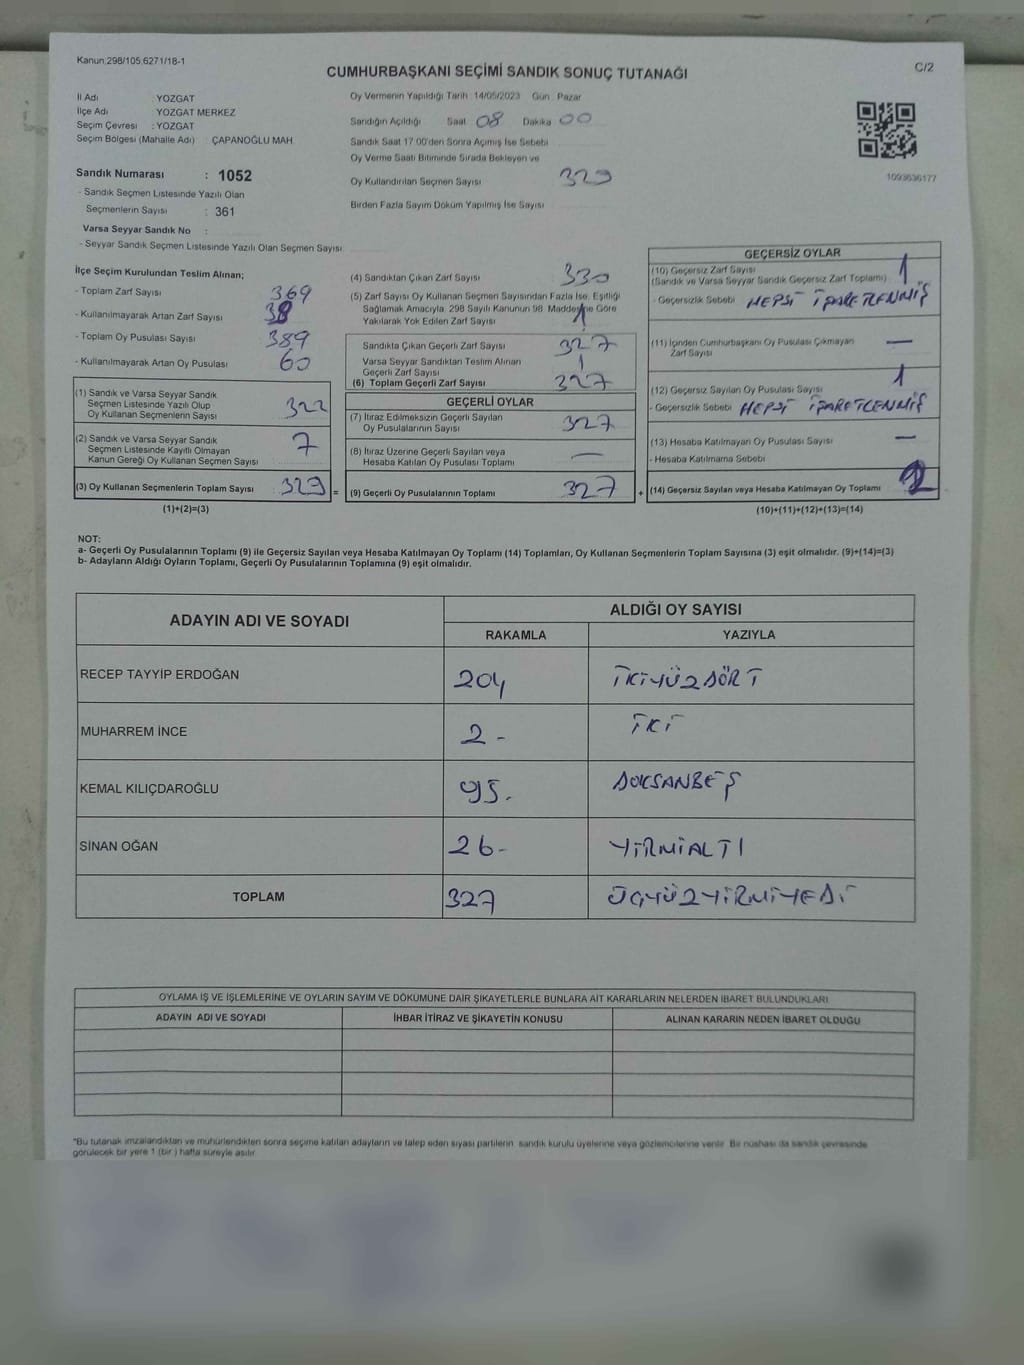 Kanun:298/105,6271/18-1
CUMHURBAŞKANI SEÇİMİ SANDIK SONUÇ TUTANAĞI
C/2
İl Adı : YOZGAT
İlçe Adı : YOZGAT MERKEZ
Seçim Çevresi : YOZGAT
Seçim Bölgesi (Mahalle Adı) : ÇAPANOĞLU MAH.
Sandık Numarası : 1052
- Sandık Seçmen Listesinde Yazılı Olan
Seçmenlerin Sayısı : 361
Varsa Seyyar Sandık No :
- Seyyar Sandık Seçmen Listesinde Yazılı Olan Seçmen Sayısı:
Oy Vermenin Yapıldığı Tarih :14/05/2023 Gün : Pazar
Sandığın Açıldığı Saat 08 Dakika 00
Sandık Saat 17.00'den Sonra Açımış İse Sebebi
Oy Verme Saati Bitiminde Sırada Bekleyen ve
Oy Kullandırılan Seçmen Sayısı 329
Birden Fazla Sayım Döküm Yapılmış İse Sayısı
1093636177
İlçe Seçim Kurulundan Teslim Alınan;
- Toplam Zarf Sayısı 369
- Kullanılmayarak Artan Zarf Sayısı 38
- Toplam Oy Pusulası Sayısı 389
- Kullanılmayarak Artan Oy Pusulası 60
(1) Sandık ve Varsa Seyyar Sandık
Seçmen Listesinde Yazılı Olup
Oy Kullanan Seçmenlerin Sayısı 322
(2) Sandık ve Varsa Seyyar Sandık
Seçmen Listesinde Kayıtlı Olmayan
Kanun Gereği Oy Kullanan Seçmen Sayısı 7
(3) Oy Kullanan Seçmenlerin Toplam Sayısı 329 =
(1)+(2)=(3)
(4) Sandıktan Çıkan Zarf Sayısı 330
(5) Zarf Sayısı Oy Kullanan Seçmen Sayısından Fazla İse, Eşitliği
Sağlamak Amacıyla, 298 Sayılı Kanunun 98. Maddesine Göre
Yakılarak Yok Edilen Zarf Sayısı 1
Sandıkta Çıkan Geçerli Zarf Sayısı 327
Varsa Seyyar Sandıktan Teslim Alınan
Geçerli Zarf Sayısı
(6) Toplam Geçerli Zarf Sayısı 327
GEÇERLİ OYLAR
(7) İtiraz Edilmeksizin Geçerli Sayılan
Oy Pusulalarının Sayısı 327
(8) İtiraz Üzerine Geçerli Sayılan veya
Hesaba Katılan Oy Pusulası Toplamı —
(9) Geçerli Oy Pusulalarının Toplamı 327 +
GEÇERSİZ OYLAR
(10) Geçersiz Zarf Sayısı
(Sandık ve Varsa Seyyar Sandık Geçersiz Zarf Toplamı) 1
- Geçersizlik Sebebi HEPSİ İŞARETLENMİŞ
(11) İçinden Cumhurbaşkanı Oy Pusulası Çıkmayan
Zarf Sayısı —
(12) Geçersiz Sayılan Oy Pusulası Sayısı 1
- Geçersizlik Sebebi HEPSİ İŞARETLENMİŞ
(13) Hesaba Katılmayan Oy Pusulası Sayısı —
- Hesaba Katılmama Sebebi
(14) Geçersiz Sayılan veya Hesaba Katılmayan Oy Toplamı 2
(10)+(11)+(12)+(13)=(14)
NOT:
a- Geçerli Oy Pusulalarının Toplamı (9) ile Geçersiz Sayılan veya Hesaba Katılmayan Oy Toplamı (14) Toplamları, Oy Kullanan Seçmenlerin Toplam Sayısına (3) eşit olmalıdır. (9)+(14)=(3)
b- Adayların Aldığı Oyların Toplamı, Geçerli Oy Pusulalarının Toplamına (9) eşit olmalıdır.
ADAYIN ADI VE SOYADI ALDIĞI OY SAYISI
RAKAMLA YAZIYLA
RECEP TAYYİP ERDOĞAN 204 İKİYÜZDÖRT
MUHARREM İNCE 2- İKİ
KEMAL KILIÇDAROĞLU 95. DOKSANBEŞ
SİNAN OĞAN 26- YİRMİALTI
TOPLAM 327 ÜÇYÜZYİRMİYEDİ
OYLAMA İŞ VE İŞLEMLERİNE VE OYLARIN SAYIM VE DÖKÜMÜNE DAİR ŞİKAYETLERLE BUNLARA AİT KARARLARIN NELERDEN İBARET BULUNDUKLARI
ADAYIN ADI VE SOYADI İHBAR İTİRAZ VE ŞİKAYETİN KONUSU ALINAN KARARIN NEDEN İBARET OLDUĞU
*Bu tutanak imzalandıktan ve mühürlendikten sonra seçime katılan adayların ve talep eden siyasi partilerin sandık kurulu üyelerine veya gözlemcilerine verilir. Bir nüshası da sandık çevresinde
görülecek bir yere 1 (bir ) hafta süreyle asılır.